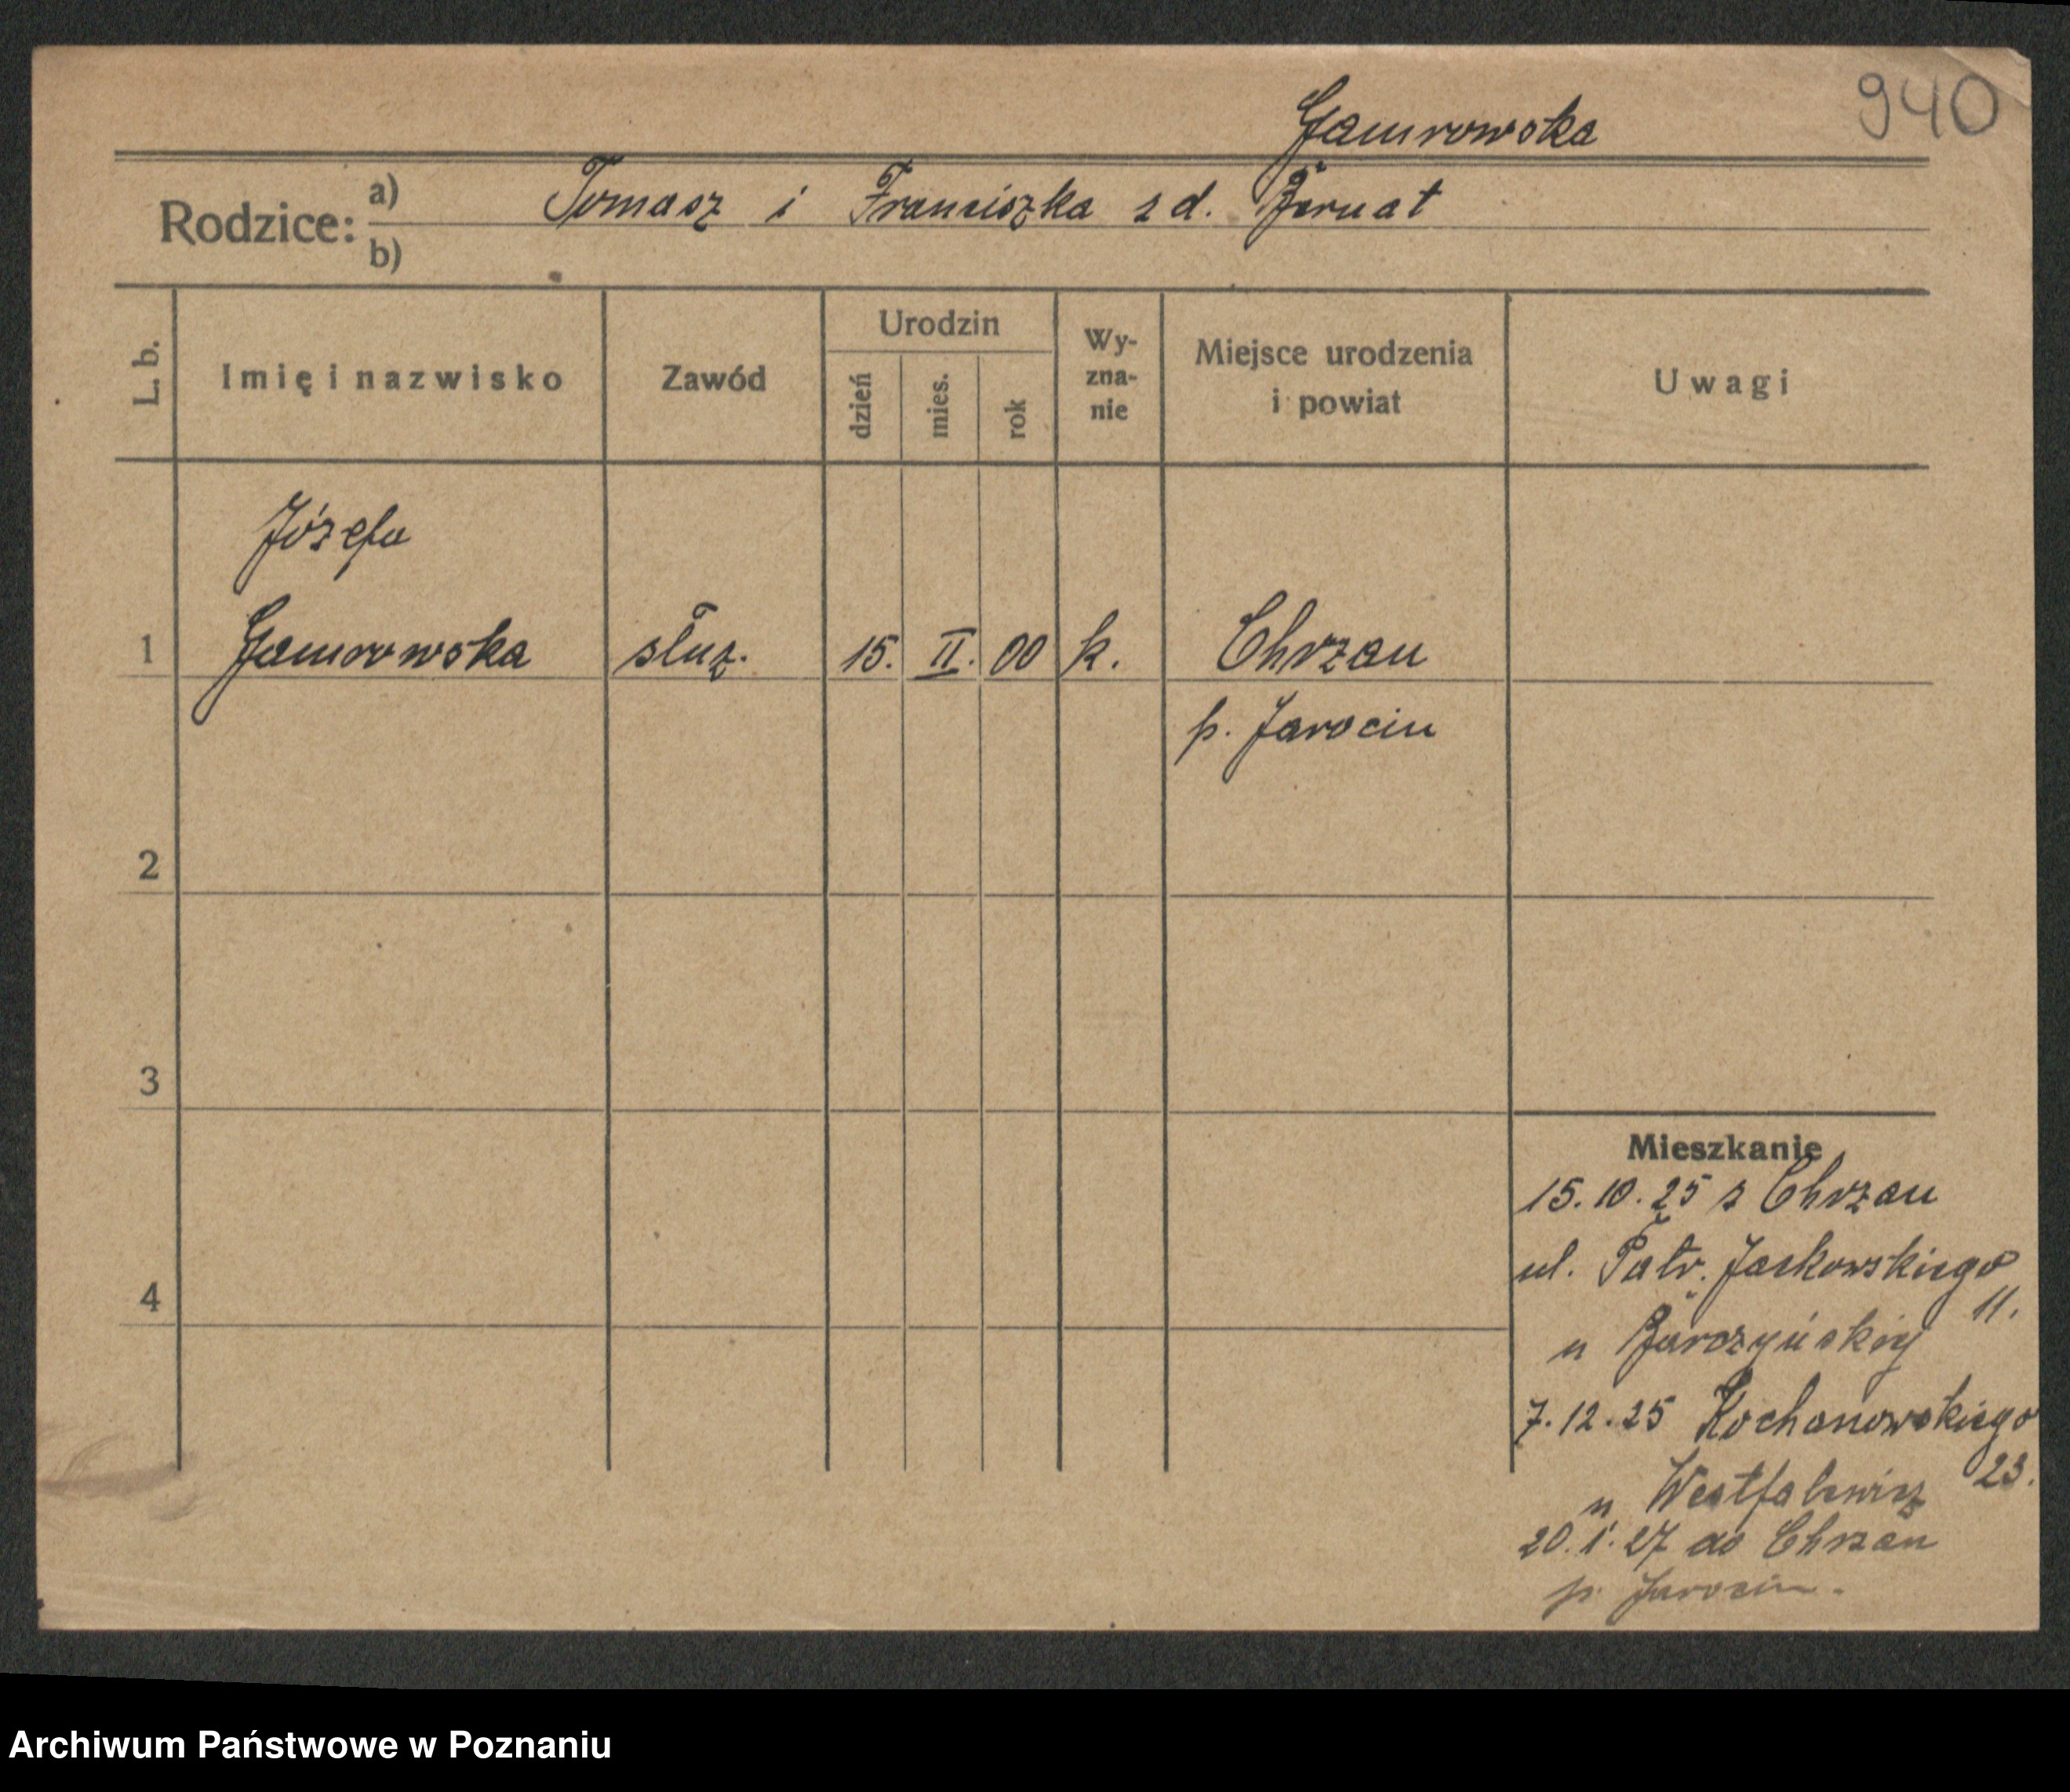 940
Gamrowska
Rodzice: a) Tomasz i Franciszka z d. Żornat
b)
L. b.
Imię i nazwisko
Zawód
Urodzin
dzień
mies.
rok
Wy-
zna-
nie
Miejsce urodzenia
i powiat
Uwagi
Józefa
1 Gamrowska służ. 15. II. 00 k. Chrzan
p. Jarocin
2
3
4
Mieszkanie
15.10.25 z Chrzan
ul. Patr. Jackowskiego
11.
u
7.12.25 Kochanowskiego
23.
u Westfalewicz
20.1.27 do Chrzan
p. Jarocin.
Archiwum Państwowe w Poznaniu